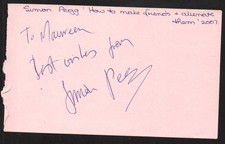 Simon Pegg How to make friends + alienate
them '2007
To Maureen
Best wishes from
Simon Pegg